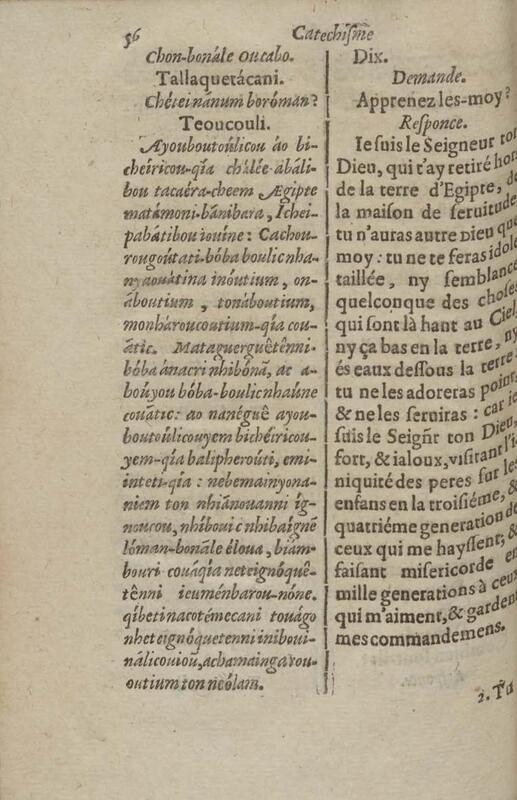 56
Catechisme
Chon-bonále oucabo.
Tallaquetácani.
Chéteinãnum boróman?
Teoucouli.
Ayouboutoúlicou áo bi-
cheíricou-qía chálée abáli-
bou tacaéra-cheem Ægipte
matámoni-bánibara, Ichei-
pabátibou iouíne: Cachou-
rougoútati-bóba boulicnha-
nyaouátina inóutium, on-
áboutium, tonáboutium,
monhároucoutium-qía cou-
átic. Mataguerguêtênni-
bóba ánacri nhibónã, ac a-
boúyou bóba-boulic nhaúne
couãtic: ao nanéguê ayou-
boutoúlicouyem bichéiricou-
yem-qía balipheroúti, emi-
inteti-qía: nebemainyona-
niem ton nhiãnouanni íg-
noucou, nhíbouic nhibaignẽ
lóman-bonãle éloua, biám-
bouri couáqía neteignóquê-
tênni ieuménbarou-nóne.
qíbetinacotémecani touágo
nheteignóquetenni inibouí-
nálicouíoú, achamaingarou-
outium ton neólam.
Dix.
Demande.
Apprenez les-moy?
Responce.
Ie suis le Seigneur ton
Dieu, qui t'ay retiré hors
de la terre d'Egipte, de
la maison de seruitude,
tu n'auras autre Dieu que
moy: tu ne te feras idole
taillée, ny semblance
quelconque des choses
qui sont là haut au Ciel,
ny ça bas en la terre, ny
és eaux dessous la terre
tu ne les adoreras point,
& ne les seruiras: car ie
suis le Seigñr ton Dieu,
fort, & ialoux, visitant l'i-
niquité des peres sur les
enfans en la troisiéme, &
quatriéme generation de
ceux qui me hayssent, &
faisant misericorde en
mille generations à ceux
qui m'aiment, & gardent
mes commandemens.
2. Tu